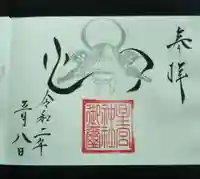 奉拝
星宮
神社
御璽
令和二年
月八日